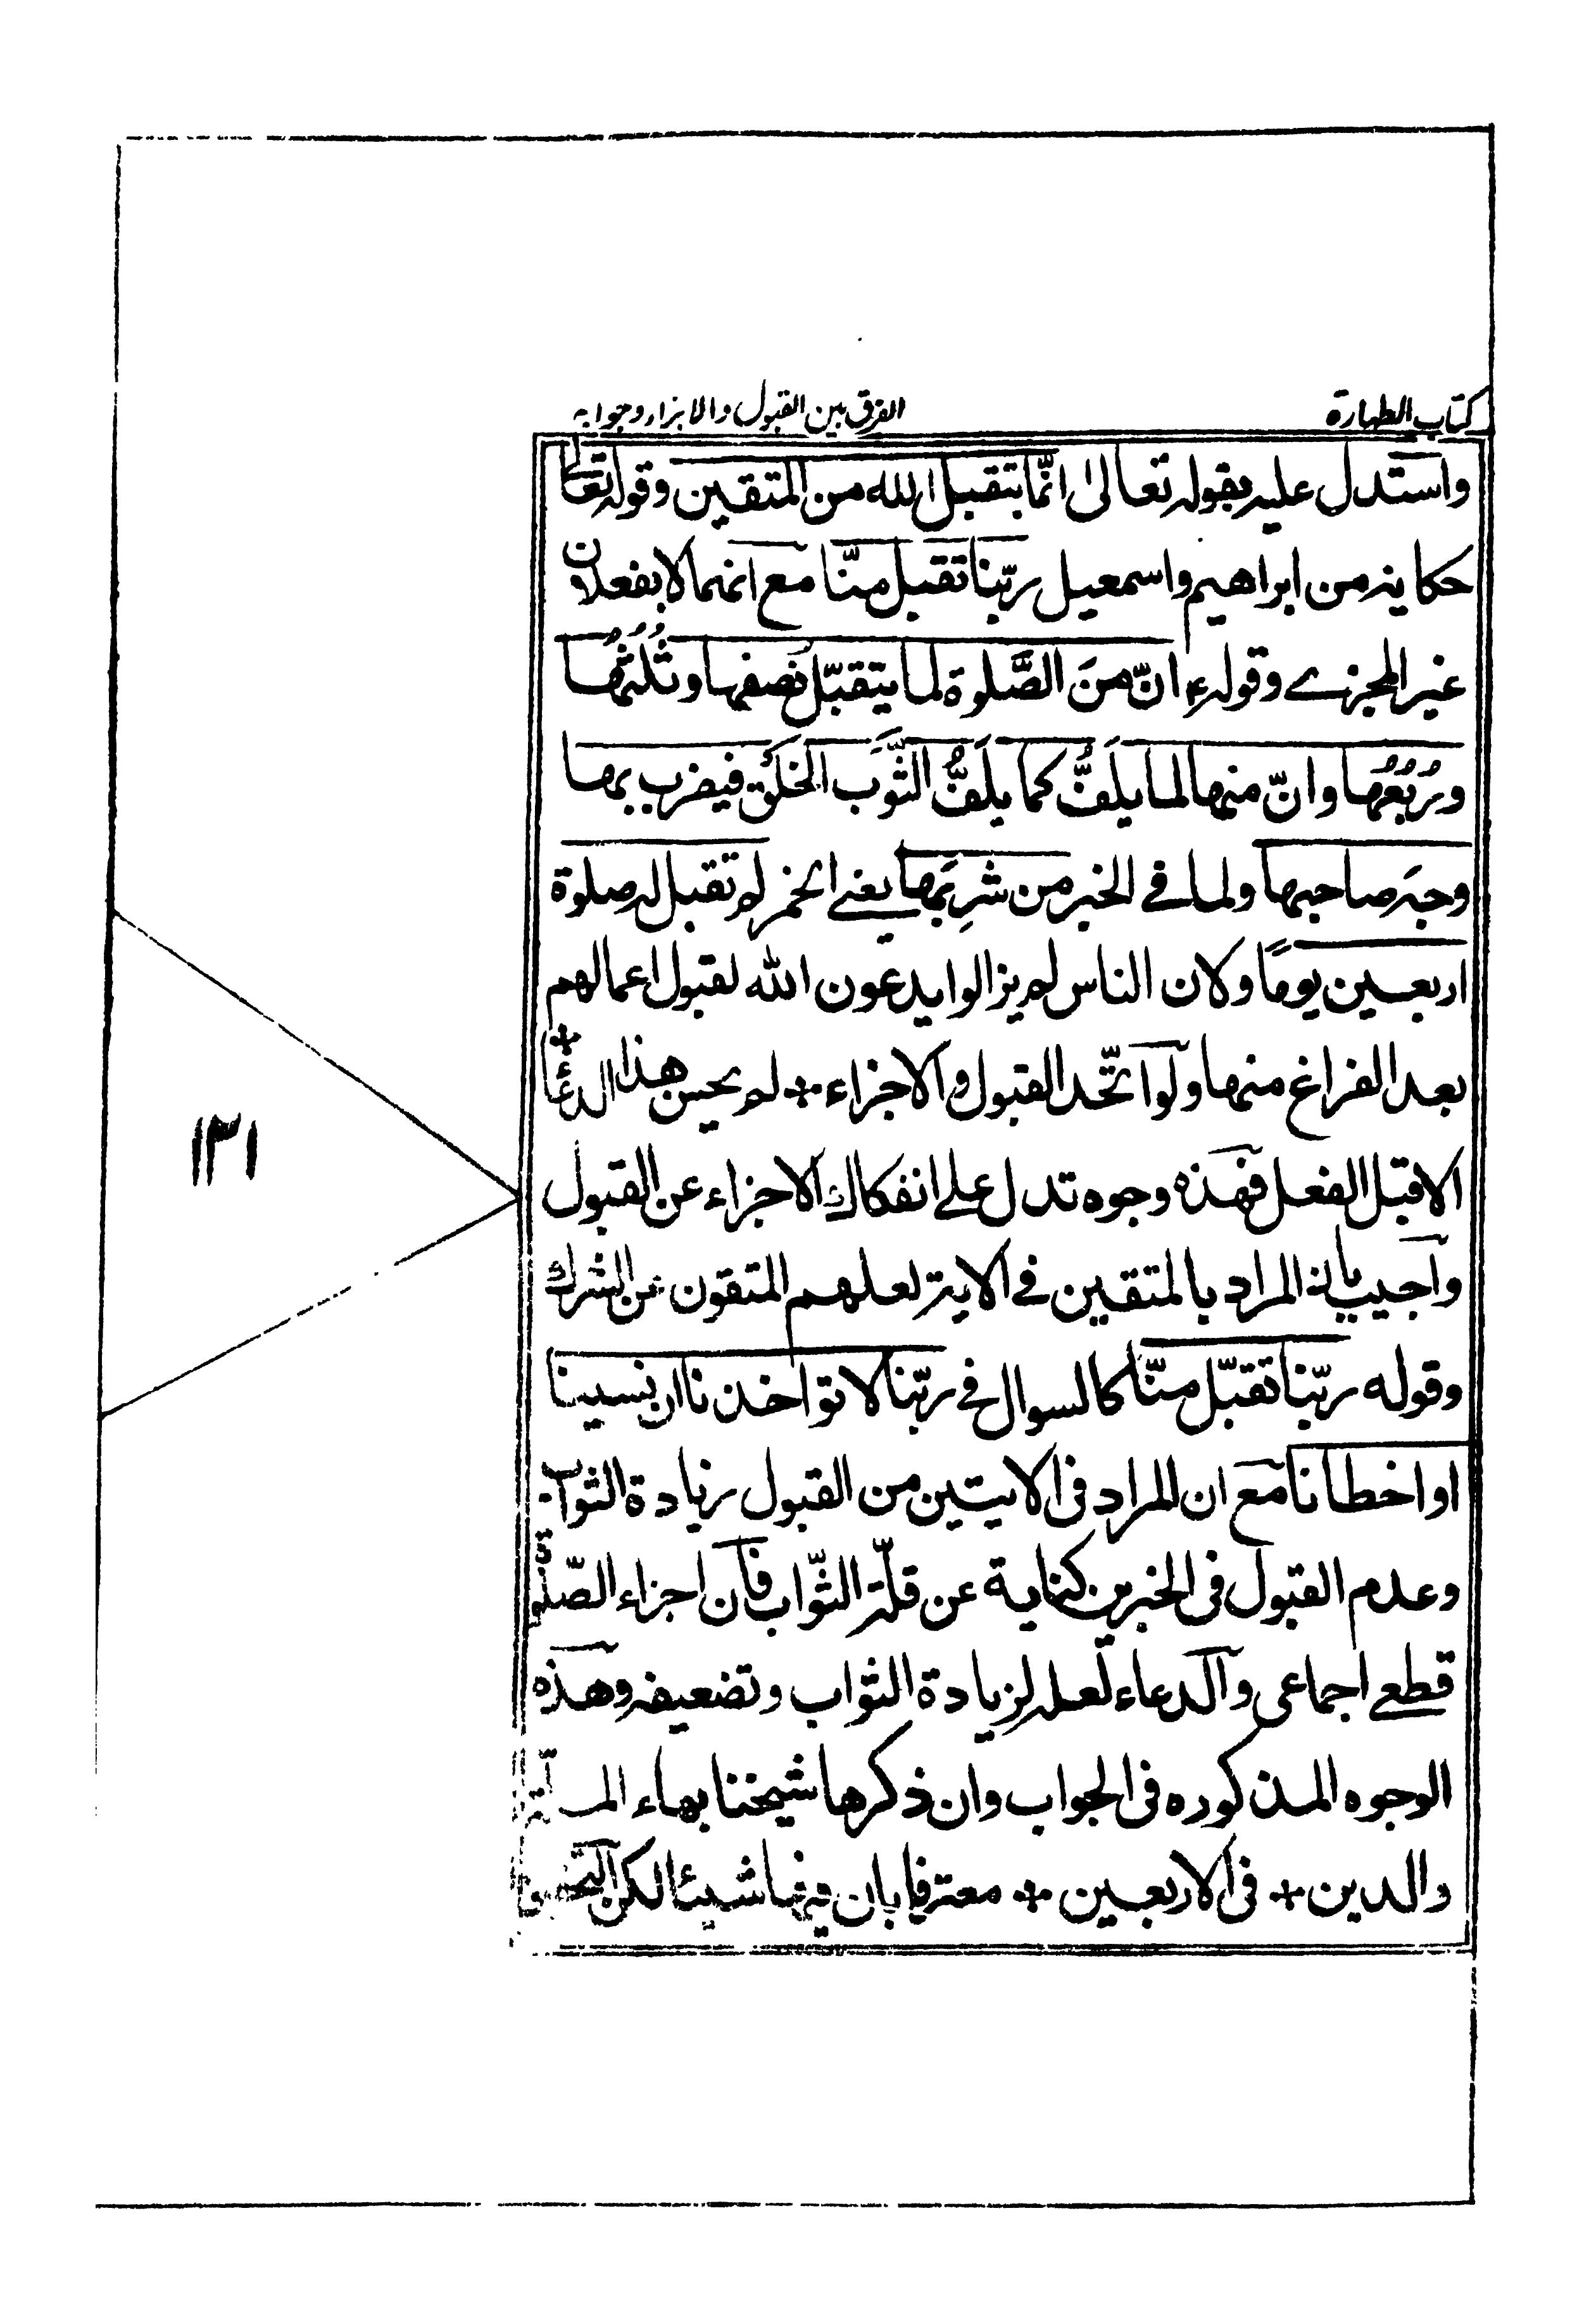 كتاب الطهارة
الفرق بين القبول والابزاء وجوابه
واستدل عليه بقوله تعالى انّما يتقبل الله من المتقين وقوله تعالى
حكاية من ابراهيم واسمعيل ربّنا تقبل منّا مع انهما لا يفعلان
غير المجزي وقوله ع انّ منَ الصَّلوة لما يتقبّل نصفها وثُلثُها
ورُبُعُها وانّ منها لما يلَفُّ كما يلَفُّ الثَّوَب الخَلَق فيضرب بها
وجه صاحبها ولما في الخبر من شرِبَها يعني الخمر لم تقبل له صلوة
اربعين يومًا ولان الناس لم يزالوا يدعون الله لقبول اعمالهم
بعد الفراغ منها ولو اتّحد القبول والاجزاء لم يحسن هذا الدعاء
الا قبل الفعل فهذه وجوه تدل على انفكاك الاجزاء عن القبول
واجيب بان المراد بالمتقين في الاية لعلهم المتقون عن الشرك
وقوله ربّنا تقبّل منّا كالسوال في ربّنا لا تواخذنا ان نسينا
او اخطانا مع ان المراد في الايتين من القبول زيادة الثواب
وعدم القبول في الخبرين كناية عن قلّة الثّواب فان اجزاء الصّلوة
قطعي اجماعي والدعاء لعله لزيادة الثواب وتضعيفه وهذه
الوجوه المذكوره في الجواب وان ذكرها شيخنا بهاء الملّة
والدين في الاربعين معترفا بان فيها شيئا لكن
١٣١